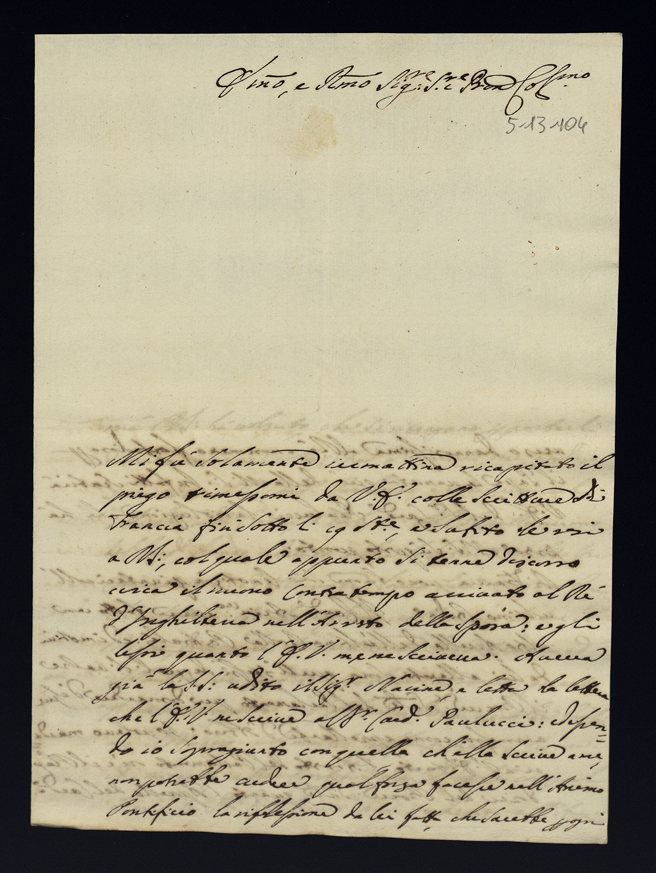 e Rmo Sigr. Sre Pron Colmo
5-13-104
Mi fù solamente iermattina ricapitato il
piego rimessomi da V. E. colle scritture di
Francia fin sotto li 19 stte, e subito
a NS:, col quale appunto si tenne discorso
circa il nuovo contratempo arrivato al Rè
d'Inghilterra nell'Arresto della Sposa: e gli
lessi quanto l'E.V. me ne scriveva. Aveva
già la SS: udito il Sigr. e letta la lettera
che l'E.V. ne scrive al Sr. Card. Paulucci:
do io sopragiunto con quella ch'Ella scrive a me,
non potrebbe credere qual forza facesse nell'Animo
Pontificio la riflessione da lei fatta, che sarebbe ogni